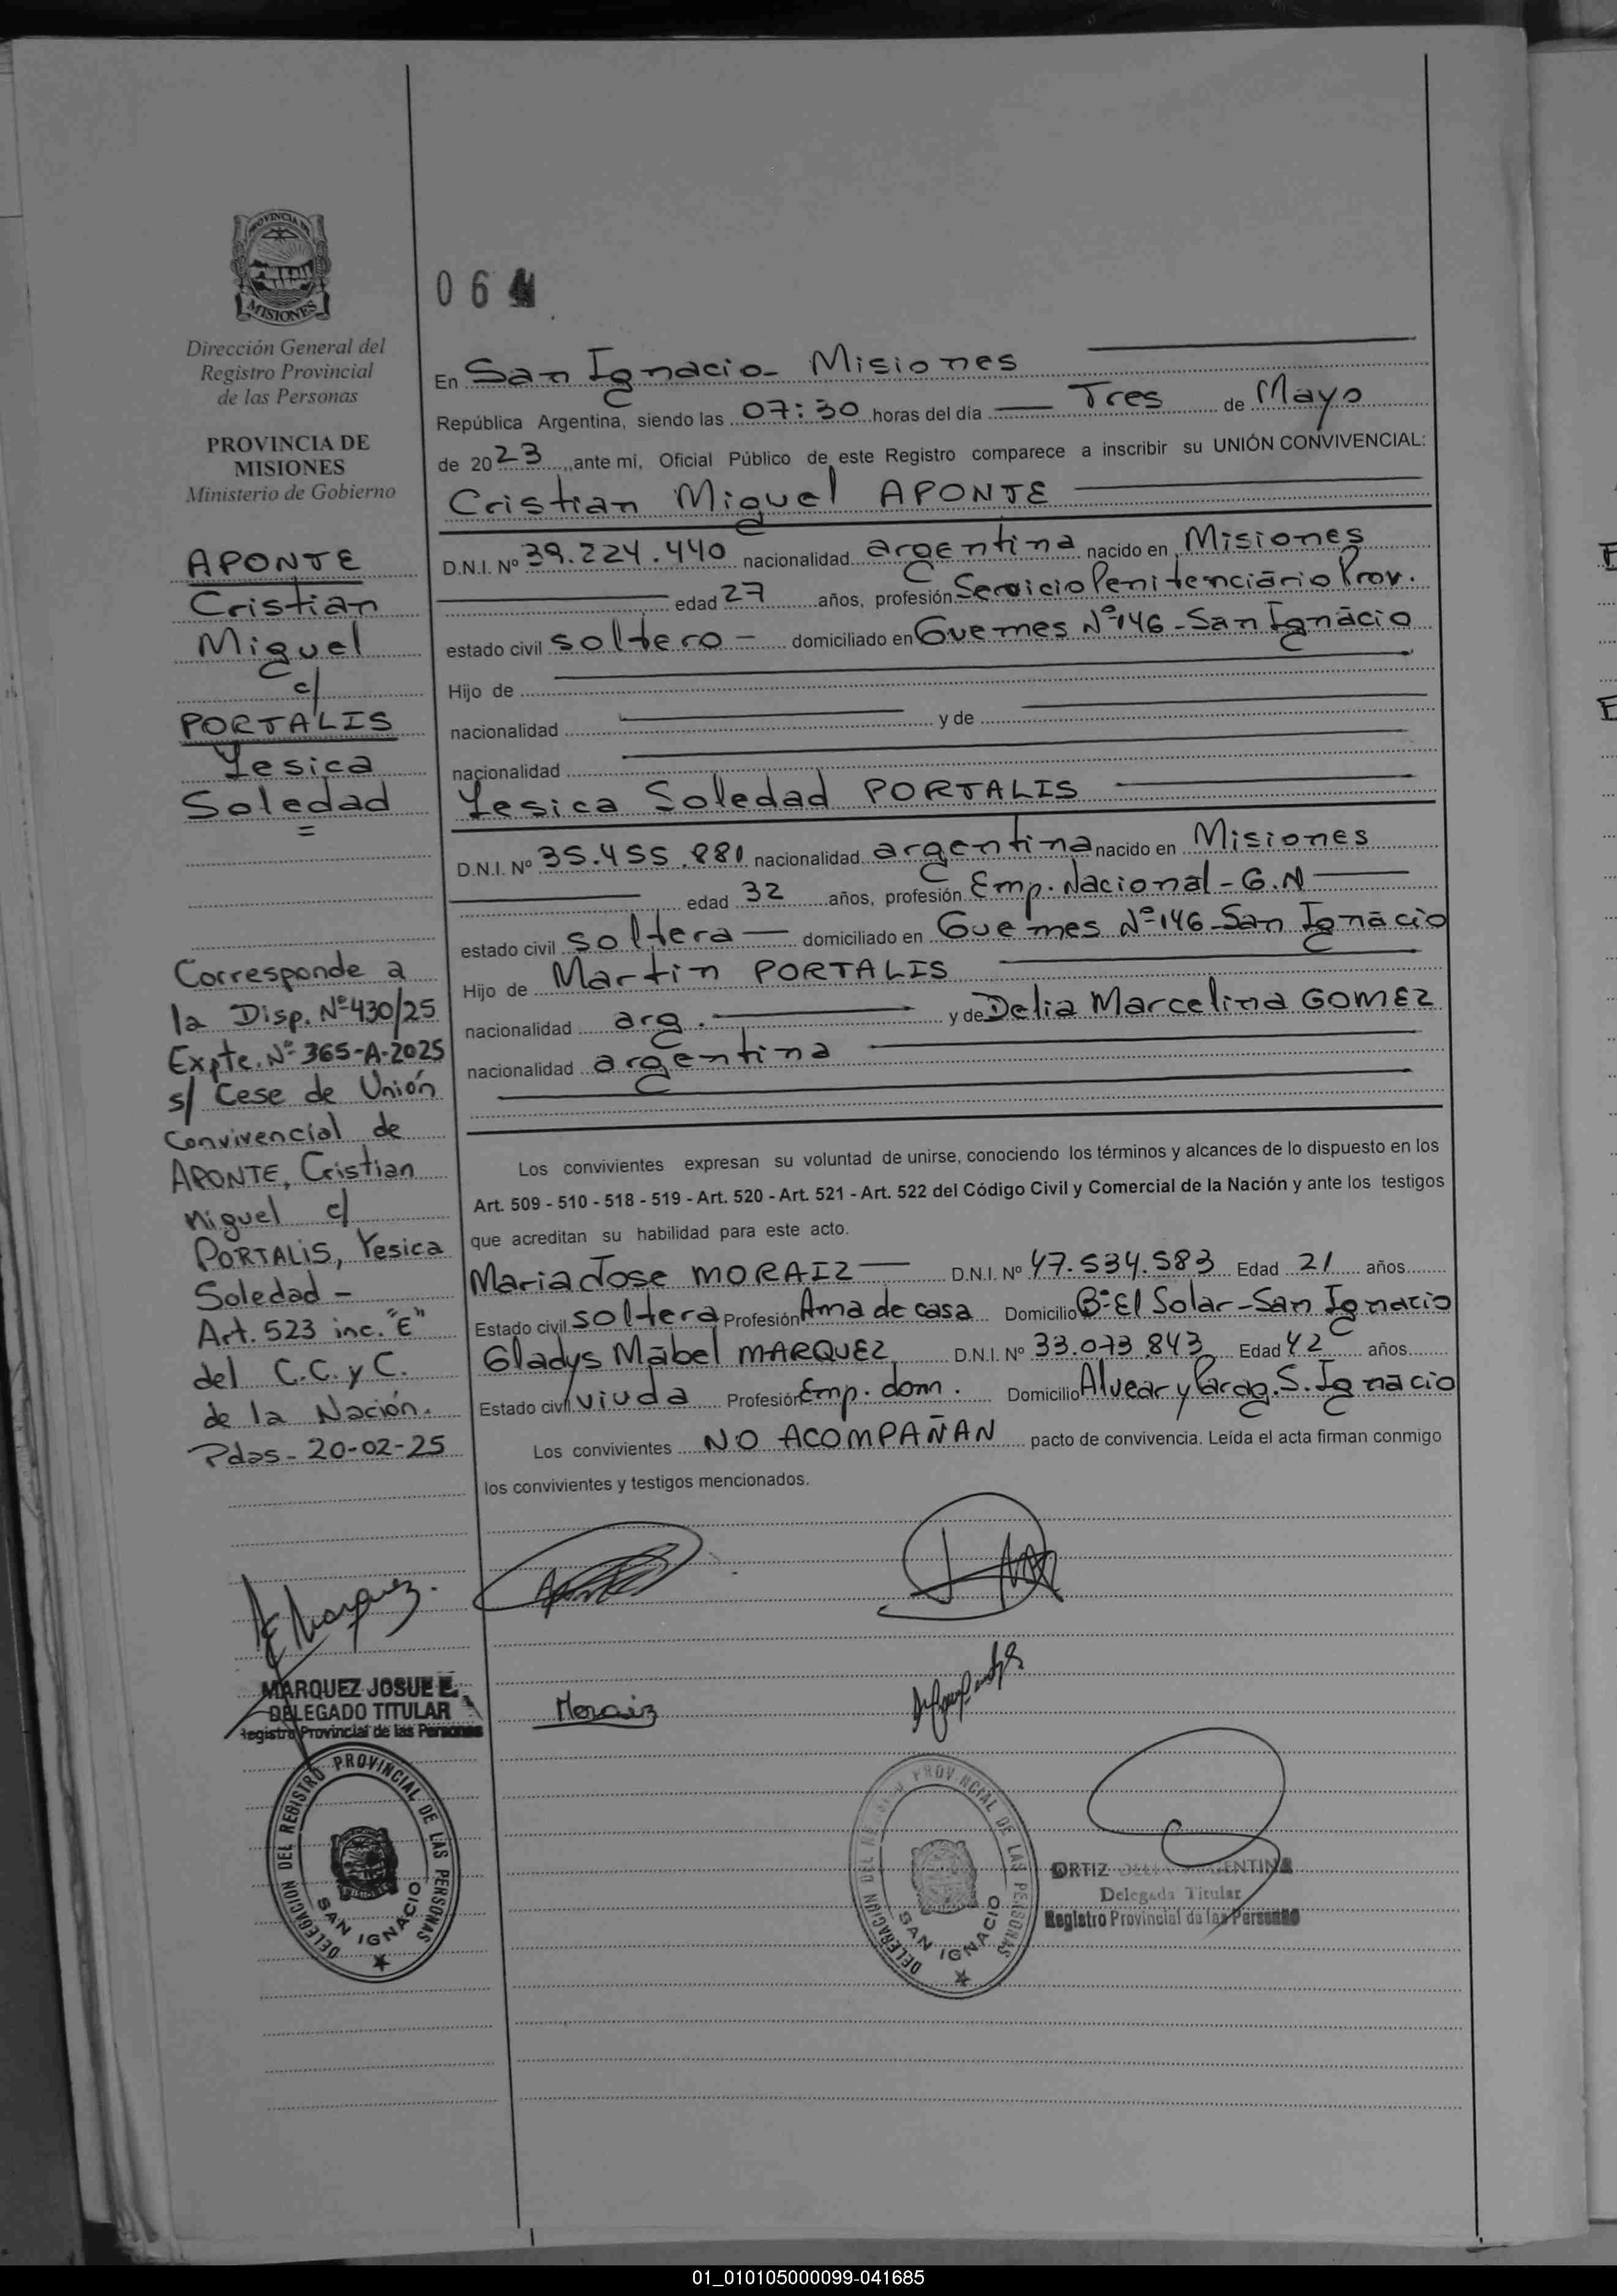 PROVINCIA DE
MISIONES
Dirección General del
Registro Provincial
de las Personas
PROVINCIA DE
MISIONES
Ministerio de Gobierno
APONTE
Cristian
Miguel
c/
PORTALIS
Yesica
Soledad
=
Corresponde a
la Disp. Nº 430/25
Expte. Nº 365-A-2025
s/ Cese de Unión
Convivencial de
APONTE, Cristian
Miguel c/
PORTALIS, Yesica
Soledad -
Art. 523 inc. "E"
del C.C. y C.
de la Nación.
Pdas - 20-02-25
MARQUEZ JOSUE E.
DELEGADO TITULAR
Registro Provincial de las Personas
DELEGACION DEL REGISTRO PROVINCIAL DE LAS PERSONAS
SAN IGNACIO
06
En San Ignacio - Misiones
República Argentina, siendo las 07:30 horas del día — Tres de Mayo
de 2023, ante mi, Oficial Público de este Registro comparece a inscribir su UNIÓN CONVIVENCIAL:
Cristian Miguel APONTE
D.N.I. Nº 39.224.440 nacionalidad argentina nacido en Misiones
edad 27 años, profesión Servicio Penitenciário Prov.
estado civil soltero – domiciliado en Guemes Nº 146 - San Ignácio
Hijo de
nacionalidad y de
nacionalidad
Yesica Soledad PORTALIS
D.N.I. Nº 35.455.881 nacionalidad argentina nacido en Misiones
edad 32 años, profesión Emp. Nacional - G.N
estado civil soltera — domiciliado en Guemes Nº 146 - San Ignácio
Hijo de Martin PORTALIS
nacionalidad arg. y de Delia Marcelina GOMEZ
nacionalidad argentina
Los convivientes expresan su voluntad de unirse, conociendo los términos y alcances de lo dispuesto en los
Art. 509 - 510 - 518 - 519 - Art. 520 - Art. 521 - Art. 522 del Código Civil y Comercial de la Nación y ante los testigos
que acreditan su habilidad para este acto.
Maria Jose MORAIZ — D.N.I. Nº 47.534.583 Edad 21 años
Estado civil soltera Profesión Ama de casa Domicilio Bº El Solar - San Ignacio
Gladys Mabel MARQUEZ D.N.I. Nº 33.073.843 Edad 42 años
Estado civil viuda Profesión Emp. dom. Domicilio Alvear y Parag. S. Ignacio
Los convivientes NO ACOMPAÑAN pacto de convivencia. Leída el acta firman conmigo
los convivientes y testigos mencionados.
Moraiz
DELEGACION DEL PROVINCIAL DE LAS PERSONAS
SAN IGNACIO
ORTIZ
Delegada Titular
Registro Provincial de las Personas
01_010105000099-041685